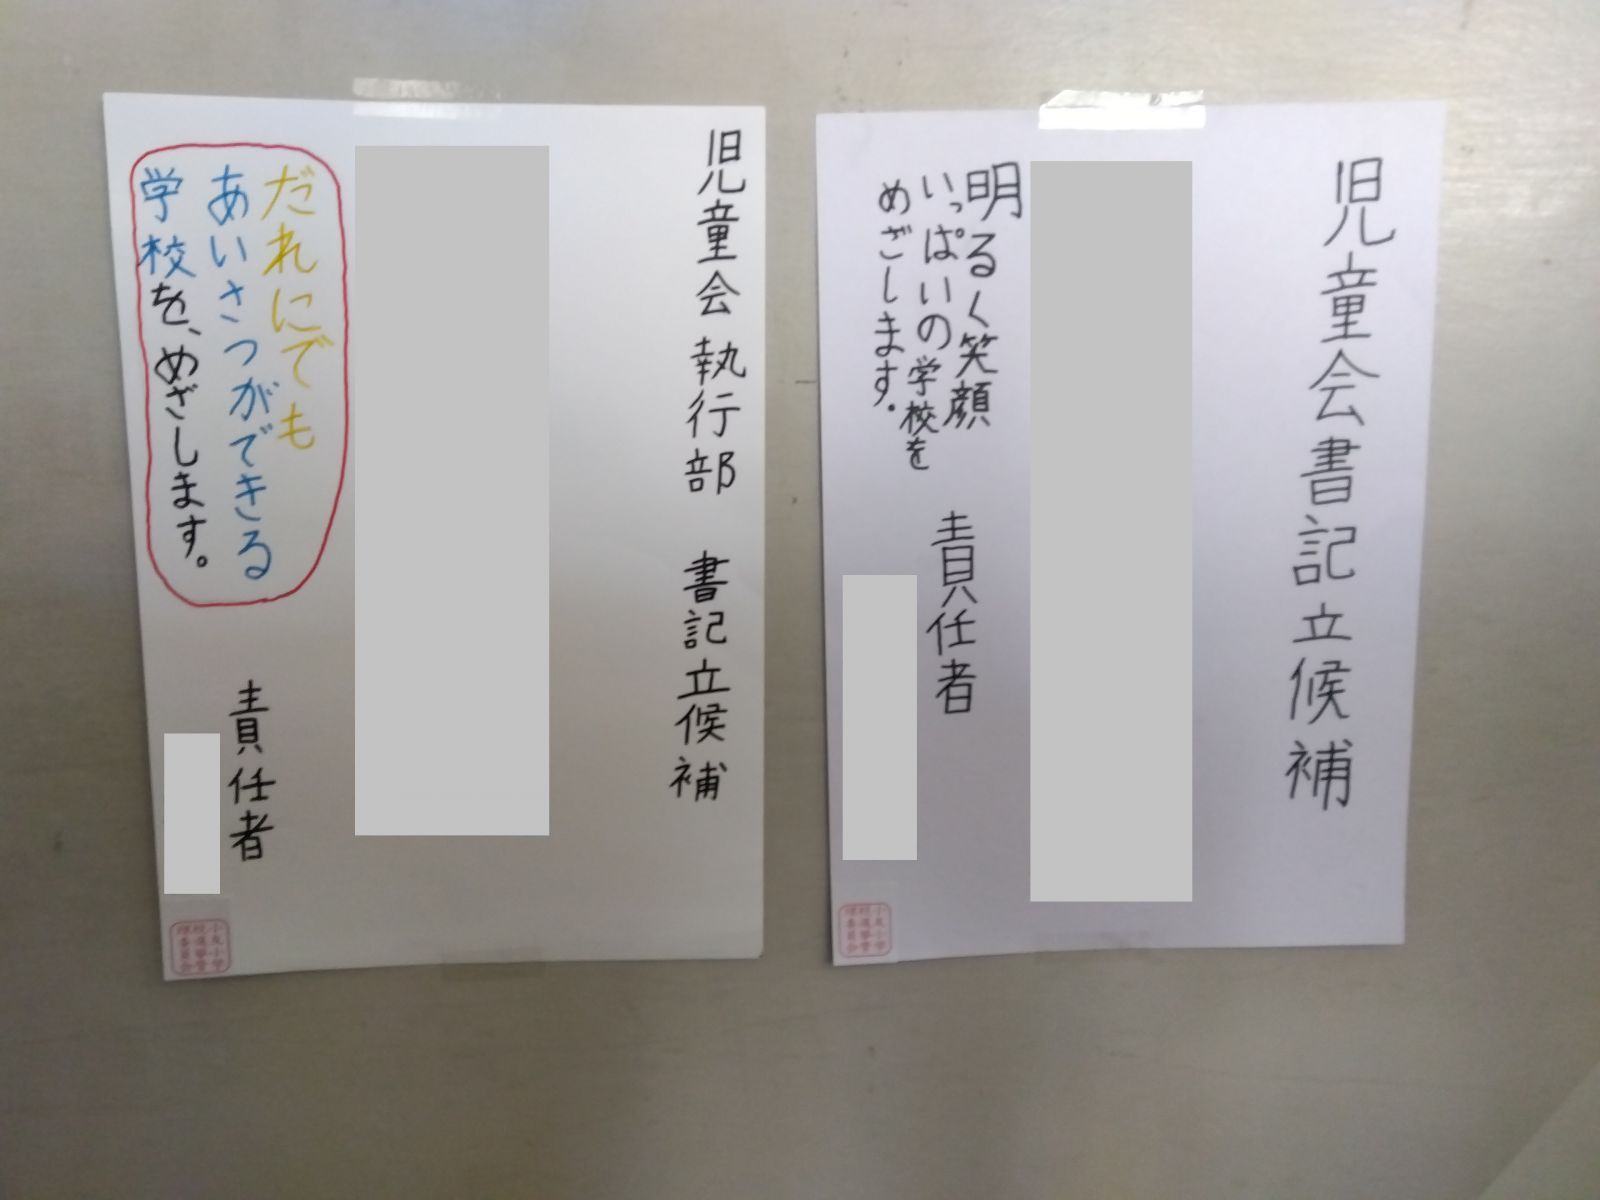 児童会執行部　書記立候補
だれにでも
あいさつができる
学校を、めざします。
責任者
児童会書記立候補
明るく笑顔
いっぱいの学校を
めざします。
責任者